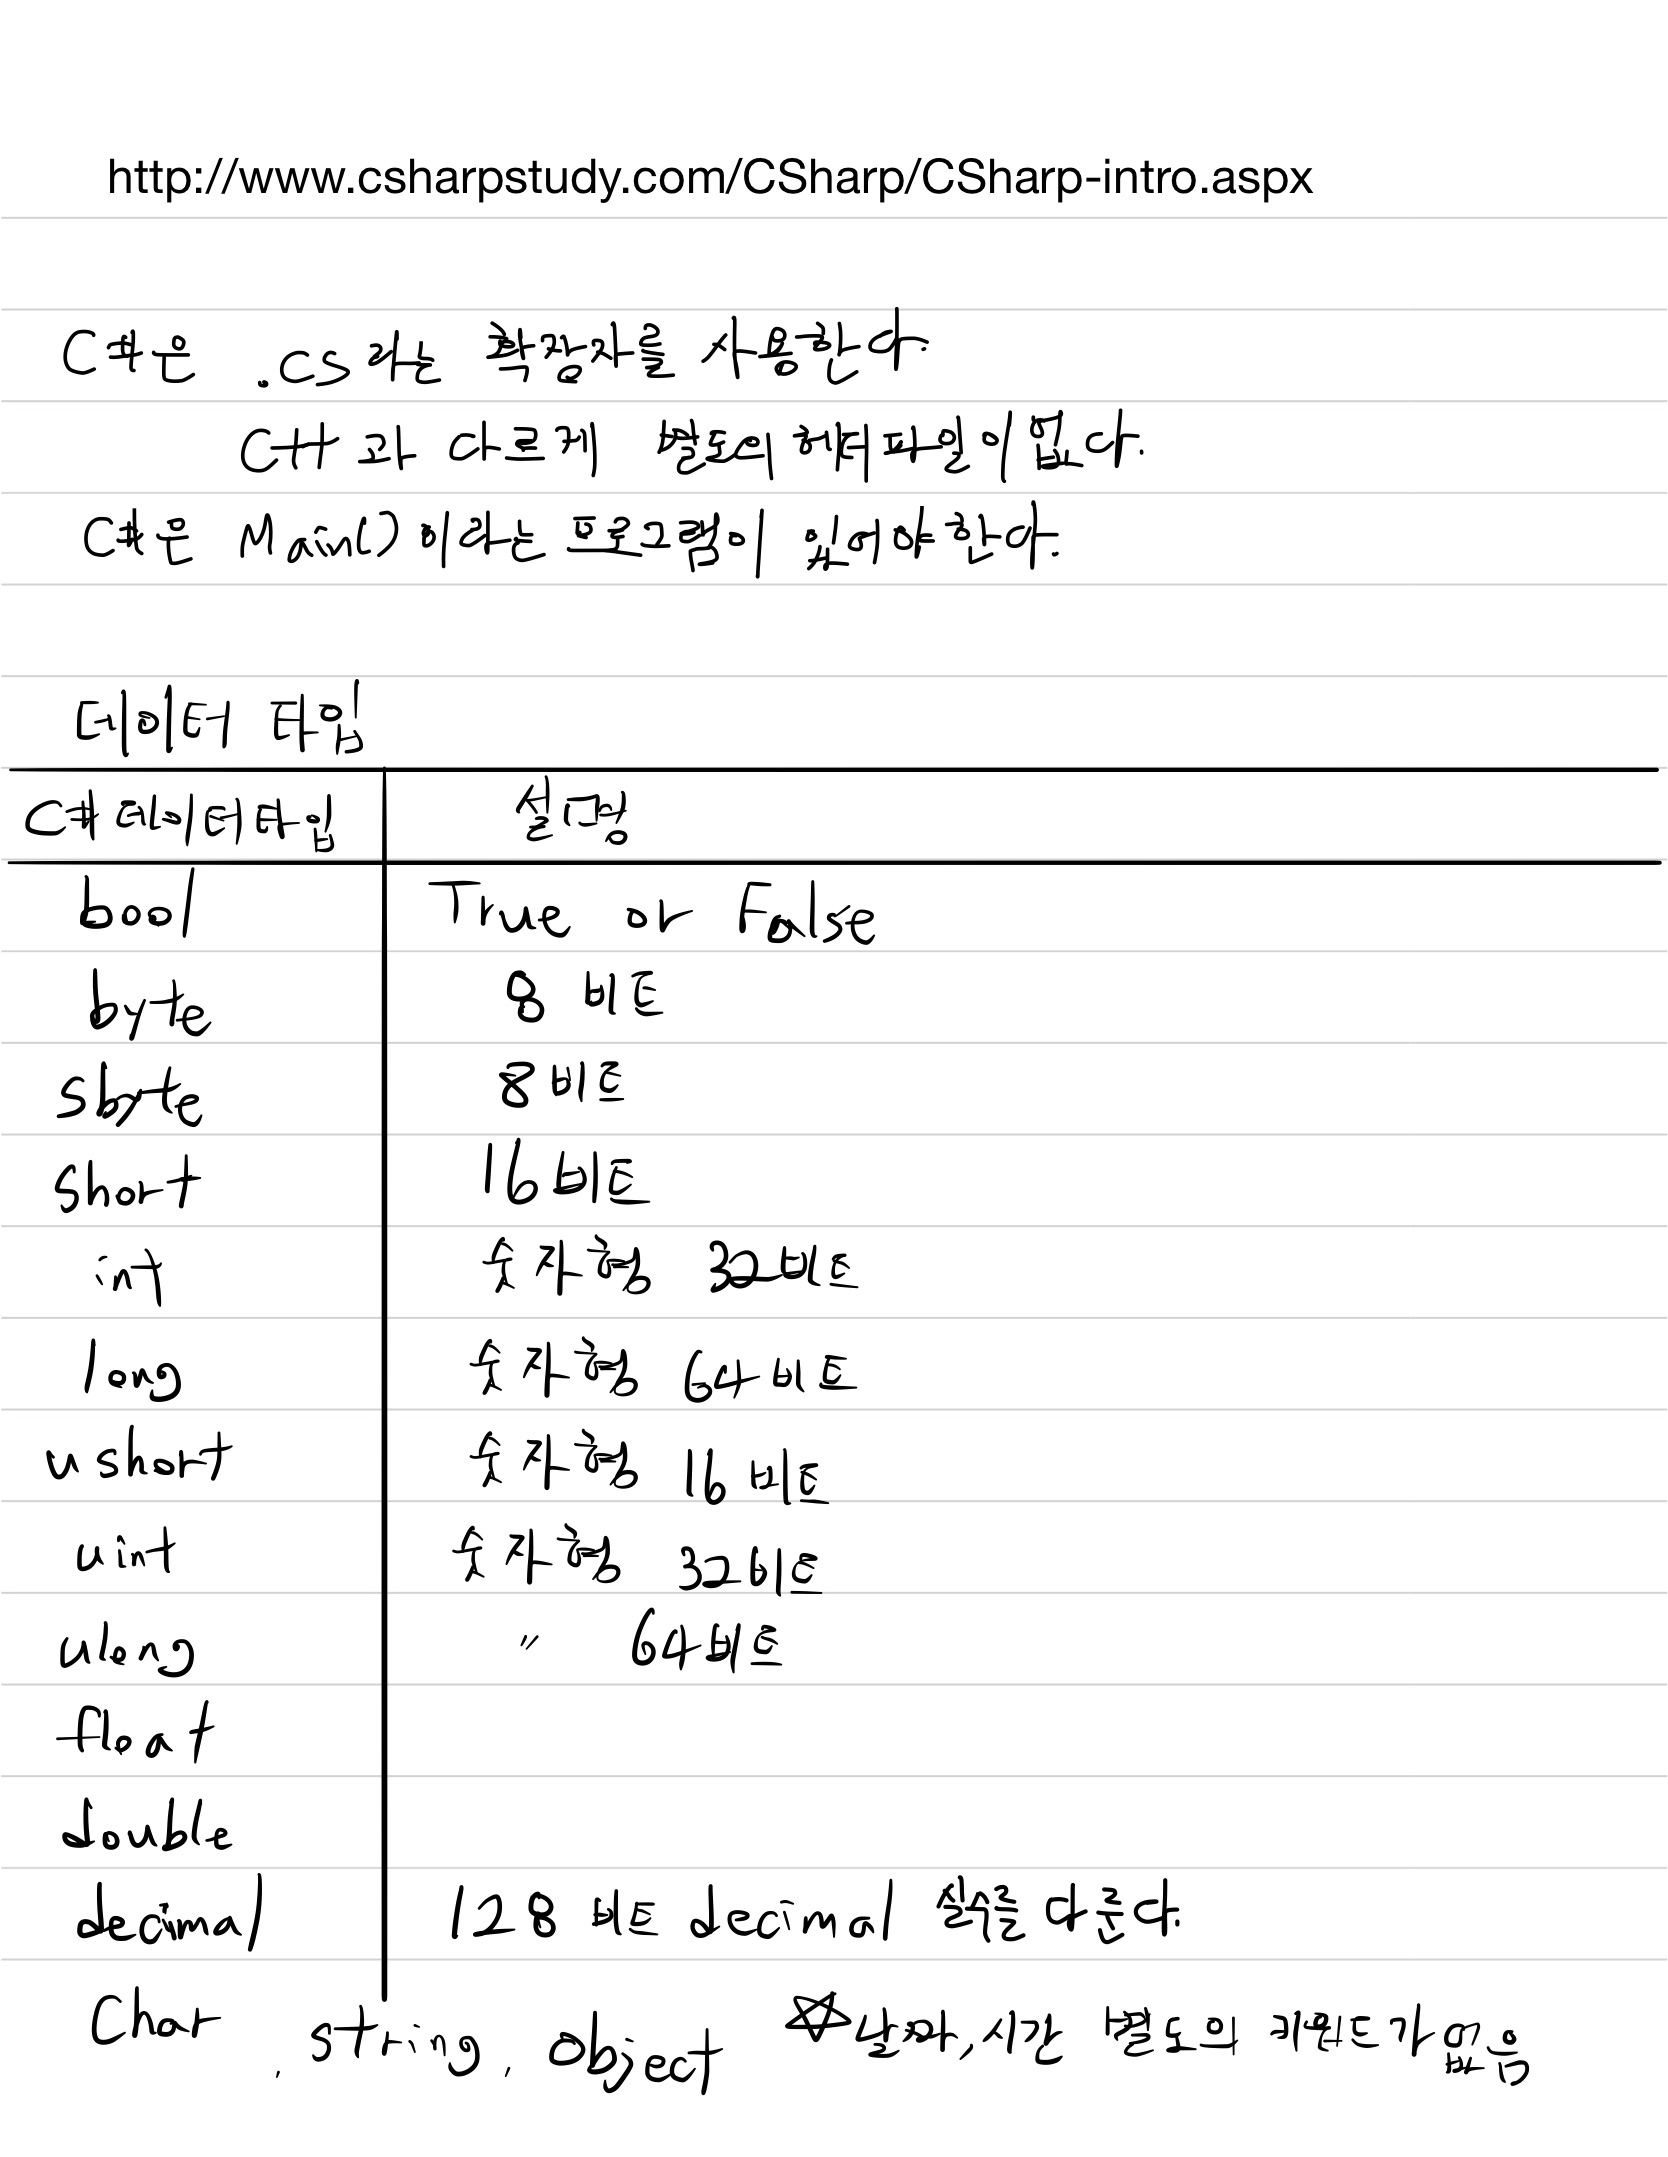 http://www.csharpstudy.com/CSharp/CSharp-intro.aspx
C#은 .CS 라는 확장자를 사용한다.
C++과 다르게 별도의 헤더파일이 없다.
C#은 Main()이라는 프로그램이 있어야한다.
데이터 타입
C#데이터타입 설명
bool True or False
byte 8 비트
sbyte 8비트
short 16비트
int 숫자형 32비트
long 숫자형 64비트
ushort 숫자형 16비트
uint 숫자형 32비트
ulong 〃 64비트
float
double
decimal 128 비트 decimal 실수를 다룬다.
Char , string, object ☆날짜,시간 별도의 키워드가 없음